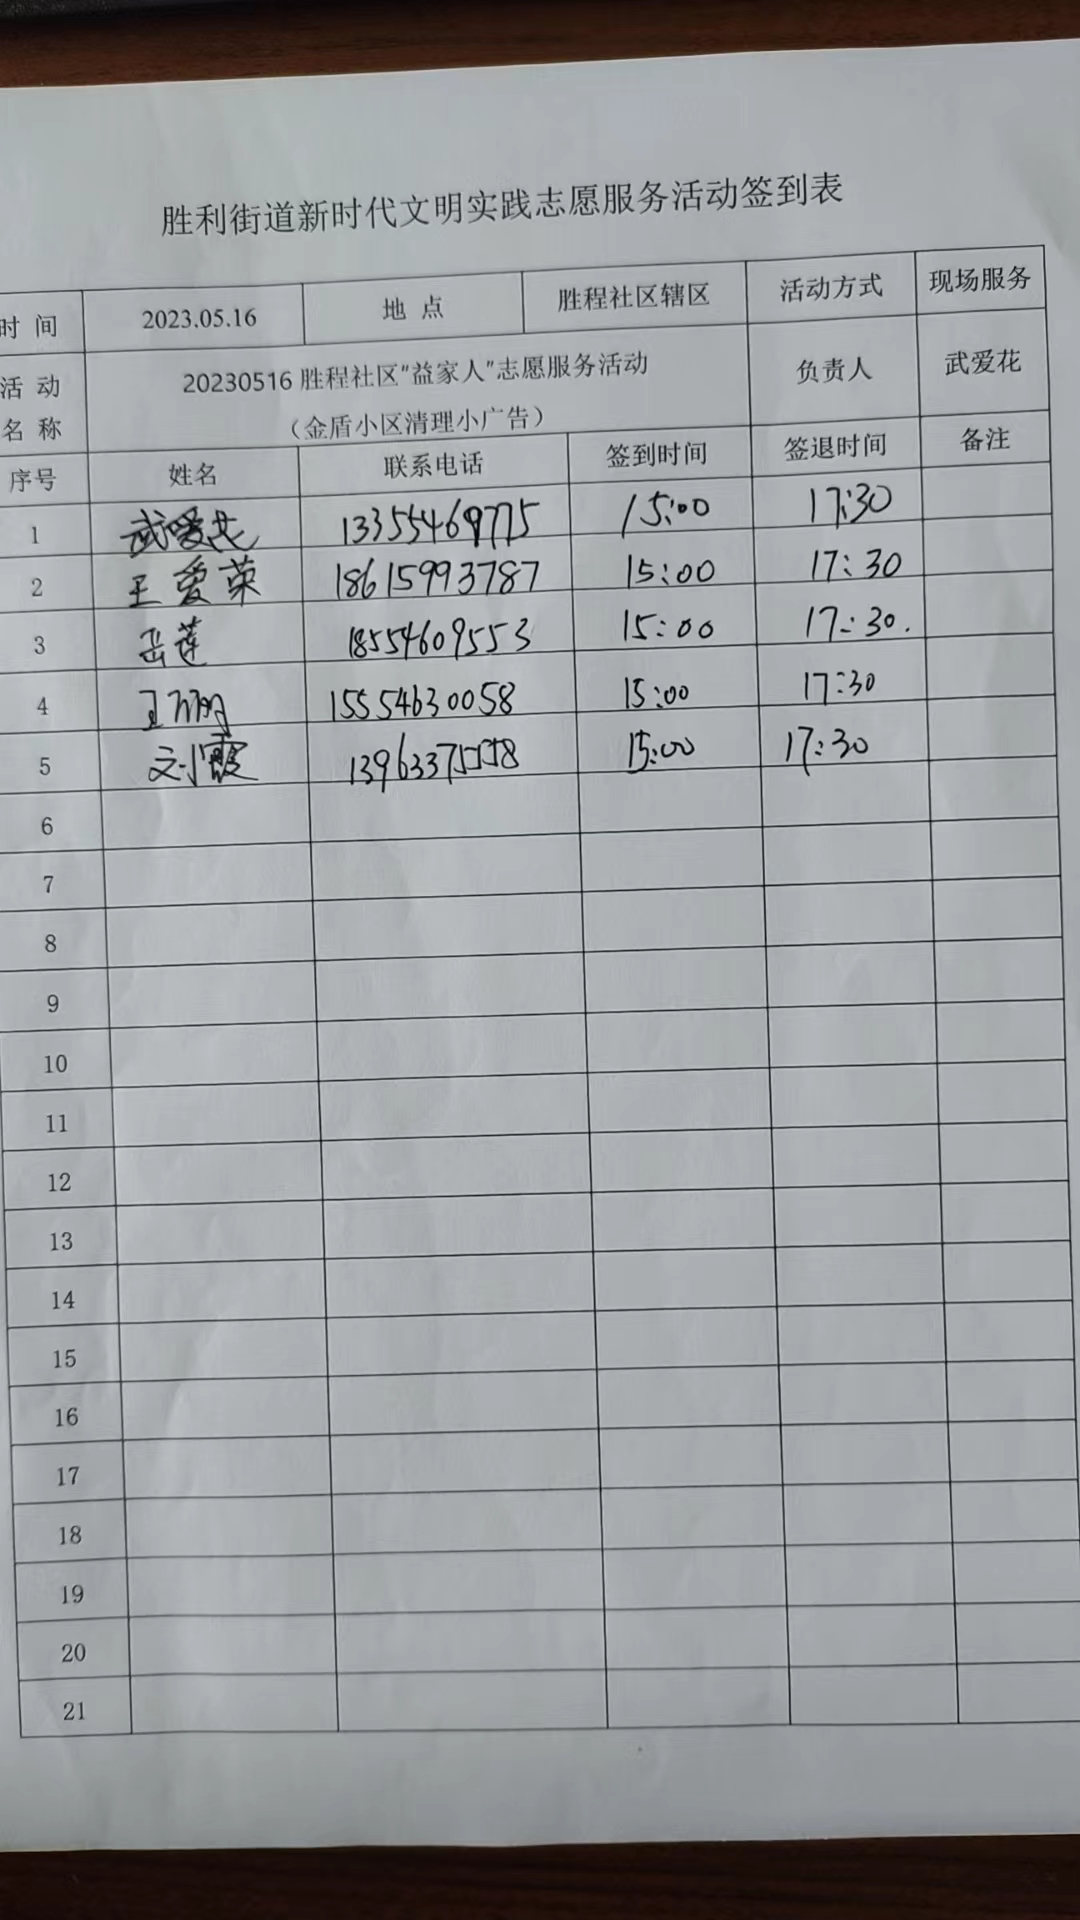 胜利街道新时代文明实践志愿服务活动签到表
时 间 2023.05.16 地 点 胜程社区辖区 活动方式 现场服务
活 动 名 称 20230516 胜程社区“益家人”志愿服务活动 负责人 武爱花
（金盾小区清理小广告）
序号 姓名 联系电话 签到时间 签退时间 备注
1 武爱花 13355469775 15:00 17:30
2 王爱荣 18615993787 15:00 17:30
3 岳莲 18554609553 15:00 17:30.
4 王 15554630058 15:00 17:30
5 刘霞 13963375558 15:00 17:30
6
7
8
9
10
11
12
13
14
15
16
17
18
19
20
21